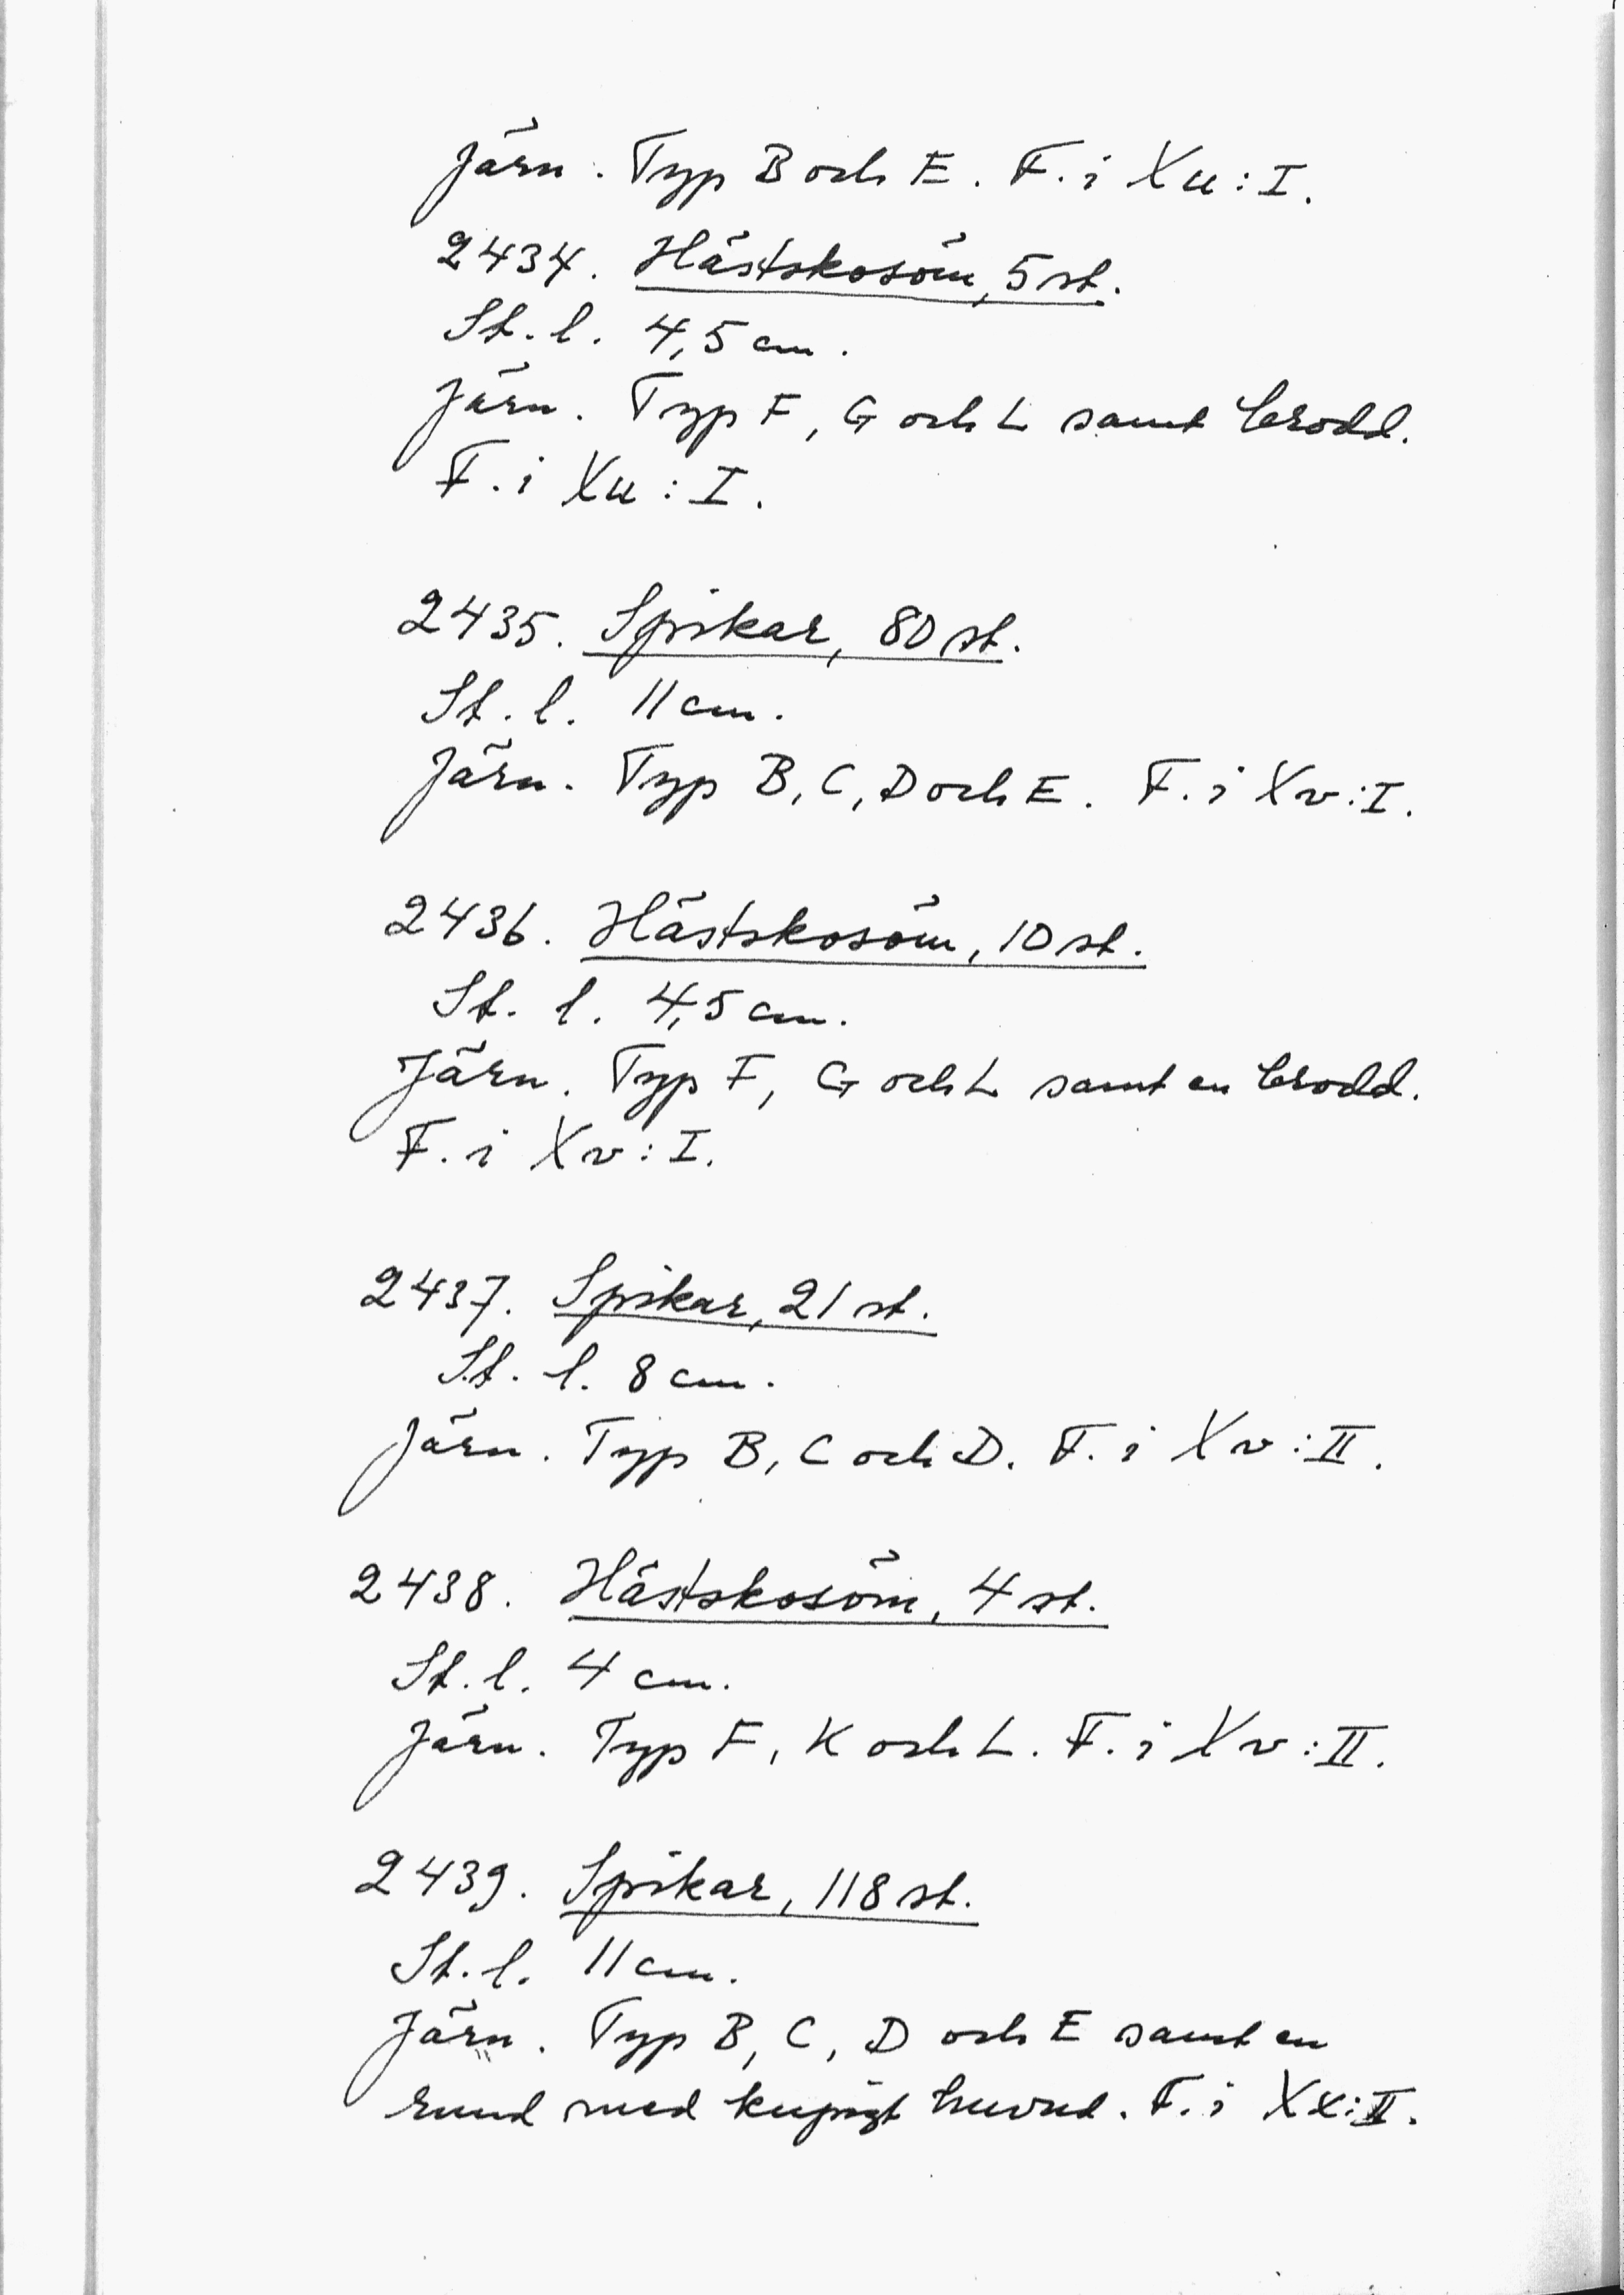 Järn. Typ B och E. F. i Xu: I.
2434. Hästskosöm, 5 st.
St. l. 4,5 cm.
Järn. Typ F, G och L samt brodd.
F. i Xu: I.
2435. Spikar, 80 st.
St. l. 11 cm.
Järn. Typ B, C, D och E. F. i Xv: I.
2436. Hästskosöm, 10 st.
St. l. 4,5 cm.
Järn. Typ F, G och L samt en brodd.
F. i Xv: I.
2437. Spikar, 21 st.
St. l. 8 cm.
Järn. Typ B, C och D. F. i Xv: II.
2438. Hästskosöm, 4 st.
St. l. 4 cm.
Järn. Typ F, K och L. F. i Xv: II.
2439. Spikar, 118 st.
St. l. 11 cm.
Järn. Typ B, C, D och E samt en
rund med kupigt huvud. F. i Xx: II.